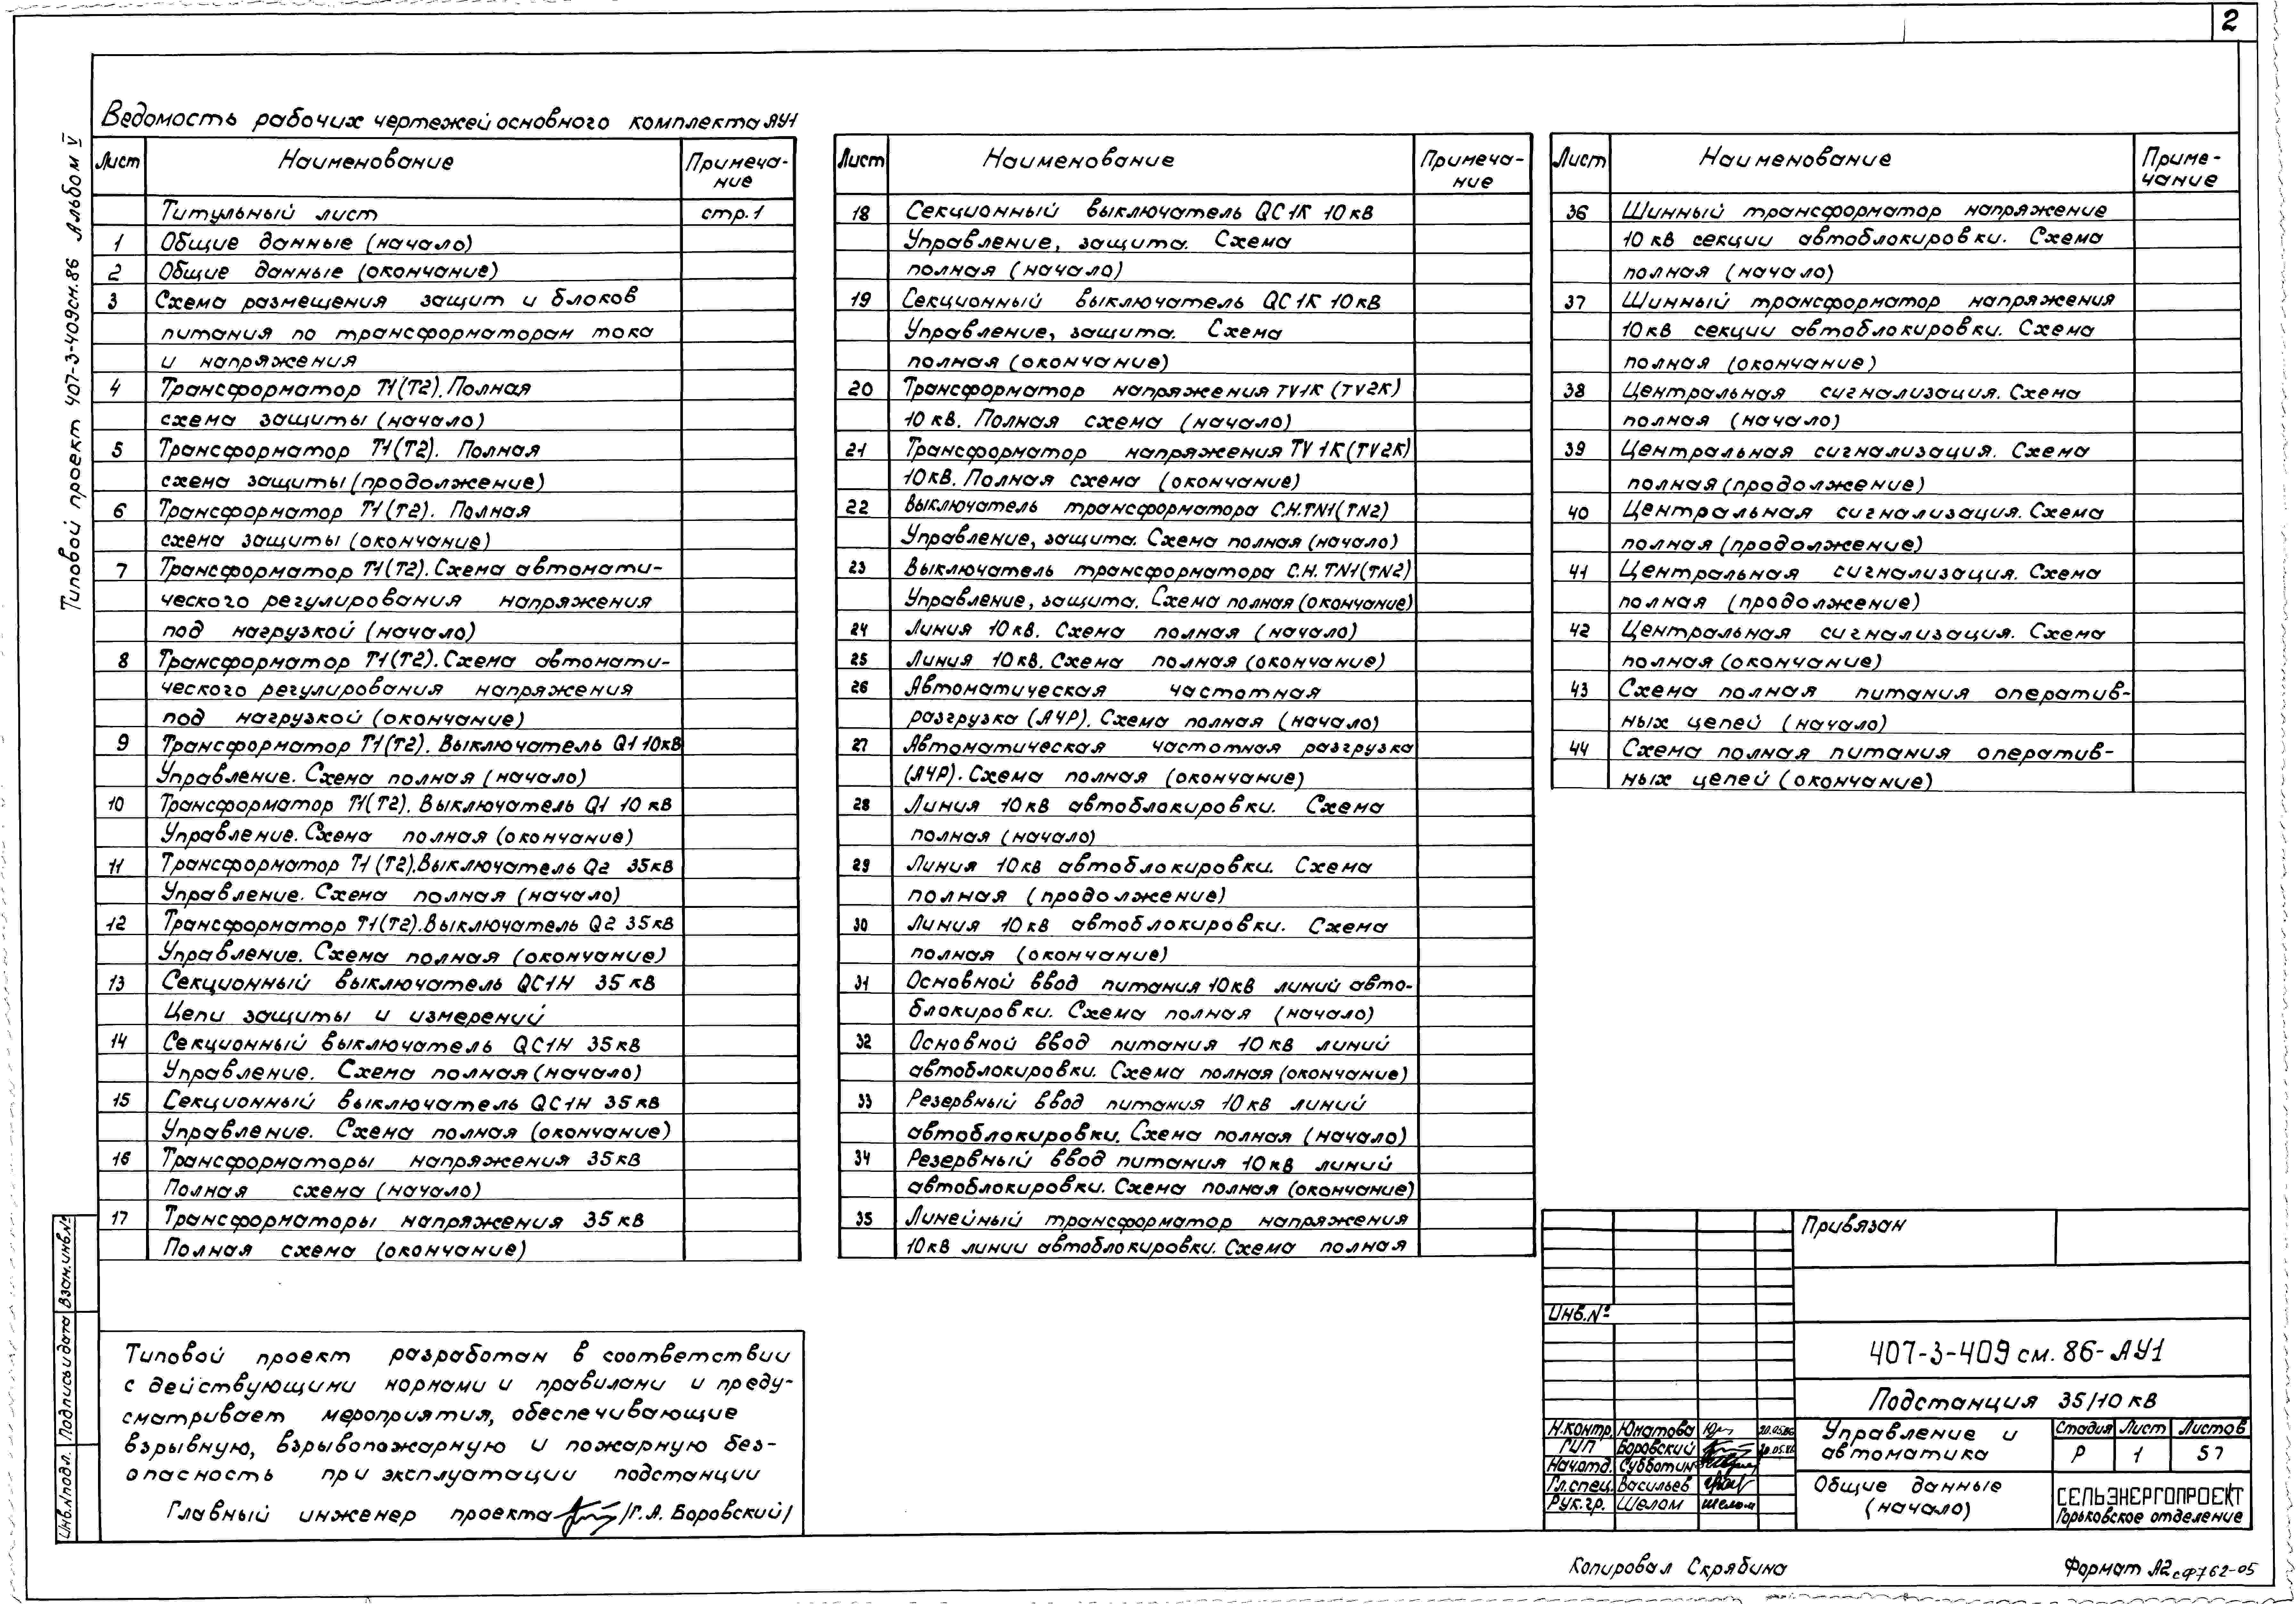 2
Типовой проект 407-3-409см.86 Альбом V
Ведомость рабочих чертежей основного комплекта АУ1
Лист Наименование Примеча-
ние
Титульный лист стр.1
1 Общие данные (начало)
2 Общие данные (окончание)
3 Схема размещения защит и блоков
питания по трансформаторам тока
и напряжения
4 Трансформатор Т1(Т2). Полная
схема защиты (начало)
5 Трансформатор Т1(Т2). Полная
схема защиты (продолжение)
6 Трансформатор Т1(Т2). Полная
схема защиты (окончание)
7 Трансформатор Т1(Т2). Схема автомати-
ческого регулирования напряжения
под нагрузкой (начало)
8 Трансформатор Т1(Т2). Схема автомати-
ческого регулирования напряжения
под нагрузкой (окончание)
9 Трансформатор Т1(Т2). Выключатель Q1 10кв
Управление. Схема полная (начало)
10 Трансформатор Т1(Т2). Выключатель Q1 10 кв
Управление. Схема полная (окончание)
11 Трансформатор Т1 (Т2). Выключатель Q2 35кв
Управление. Схема полная (начало)
12 Трансформатор Т1(Т2). Выключатель Q2 35 кв
Управление. Схема полная (окончание)
13 Секционный выключатель QC1H 35 кв
Цепи защиты и измерений
14 Секционный выключатель QC1H 35 кв
Управление. Схема полная (начало)
15 Секционный выключатель QC1H 35 кв
Управление. Схема полная (окончание)
16 Трансформаторы напряжения 35 кв
Полная схема (начало)
17 Трансформаторы напряжения 35 кв
Полная схема (окончание)
Лист Наименование Примеча-
ние
18 Секционный выключатель QC1K 10 кв
Управление, защита. Схема
полная (начало)
19 Секционный выключатель QC1K 10 кв
Управление, защита. Схема
полная (окончание)
20 Трансформатор напряжения TV1K (TV2K)
10 кв. Полная схема (начало)
21 Трансформатор напряжения TV 1K (TV2K)
10кв. Полная схема (окончание)
22 Выключатель трансформатора С.Н.TN1(TN2)
Управление, защита. Схема полная (начало)
23 Выключатель трансформатора С.Н. TN1(TN2)
Управление, защита. Схема полная (окончание)
24 Линия 10 кв. Схема полная (начало)
25 Линия 10 кв. Схема полная (окончание)
26 Автоматическая частотная
разгрузка (АЧР). Схема полная (начало)
27 Автоматическая частотная разгрузка
(АЧР). Схема полная (окончание)
28 Линия 10 кв автоблокировки. Схема
полная (начало)
29 Линия 10 кв автоблокировки. Схема
полная (продолжение)
30 Линия 10 кв автоблокировки. Схема
полная (окончание)
31 Основной ввод питания 10 кв линий авто-
блокировки. Схема полная (начало)
32 Основной ввод питания 10 кв линий
автоблокировки. Схема полная (окончание)
33 Резервный ввод питания 10 кв линий
автоблокировки. Схема полная (начало)
34 Резервный ввод питания 10 кв линий
автоблокировки. Схема полная (окончание)
35 Линейный трансформатор напряжения
10кв линии автоблокировки. Схема полная
Лист Наименование Приме-
чание
36 Шинный трансформатор напряжение
10 кв секции автоблокировки. Схема
полная (начало)
37 Шинный трансформатор напряжения
10 кв секции автоблокировки. Схема
полная (окончание)
38 Центральная сигнализация. Схема
полная (начало)
39 Центральная сигнализация. Схема
полная (продолжение)
40 Центральная сигнализация. Схема
полная (продолжение)
41 Центральная сигнализация. Схема
полная (продолжение)
42 Центральная сигнализация. Схема
полная (окончание)
43 Схема полная питания оператив-
ных цепей (начало)
44 Схема полная питания оператив-
ных цепей (окончание)
Типовой проект разработан в соответствии
с действующими нормами и правилами и преду-
сматривает мероприятия, обеспечивающие
взрывную, взрывопожарную и пожарную без-
опасность при эксплуатации подстанции
Главный инженер проекта /Г.А. Боровский/
Взам.инв.№
Подпись и дата
Инв.№подл.
Привязан
Инв.№
407-3-409 см. 86-АУ1
Подстанция 35/10 кв
Н.контр. Юматова 20.05.86
ГИП Боровский 20.05.86
Нач.отд. Субботин
Гл.спец. Васильев
Рук.гр. Шелом Шелом
Управление и
автоматика
Стадия Лист Листов
Р 1 57
Общие данные
(начало)
СЕЛЬЭНЕРГОПРОЕКТ
Горьковское отделение
Копировал Скрябина
Формат А2 сф762-05